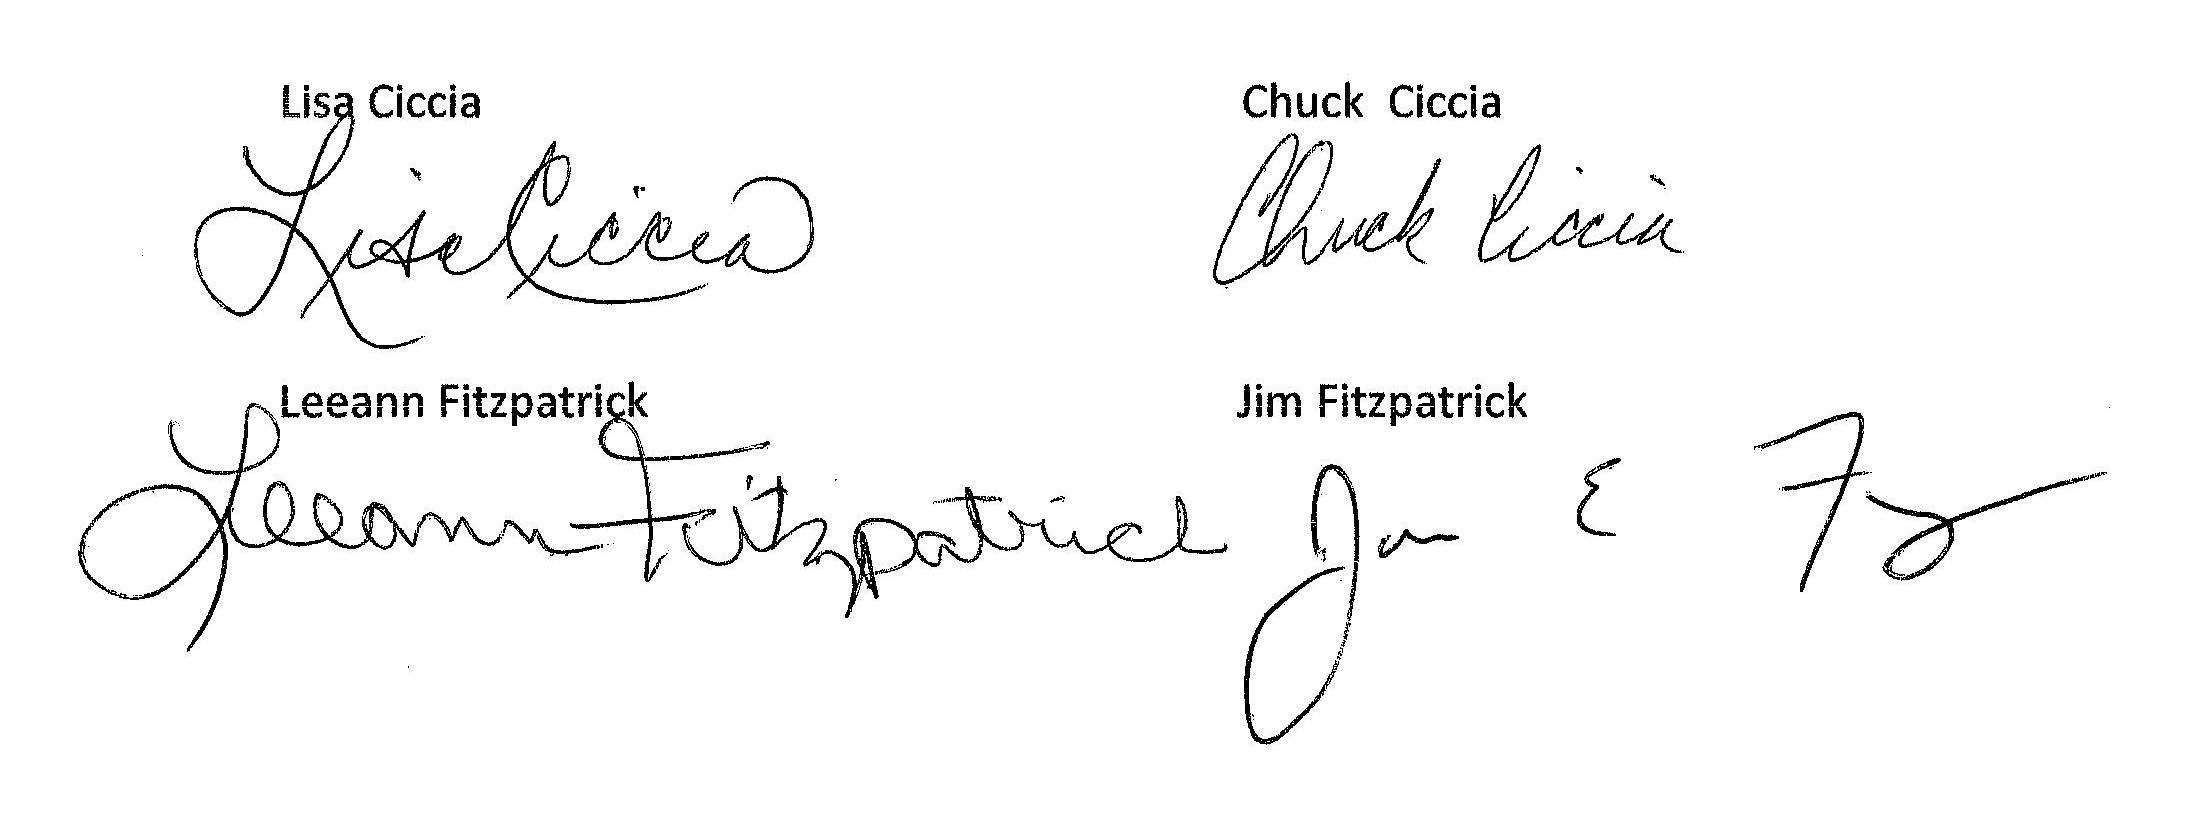 Lisa Ciccia Chuck Ciccia
Lisa Ciccia Chuck Ciccia
Leeann Fitzpatrick Jim Fitzpatrick
Leeann Fitzpatrick Jim E F